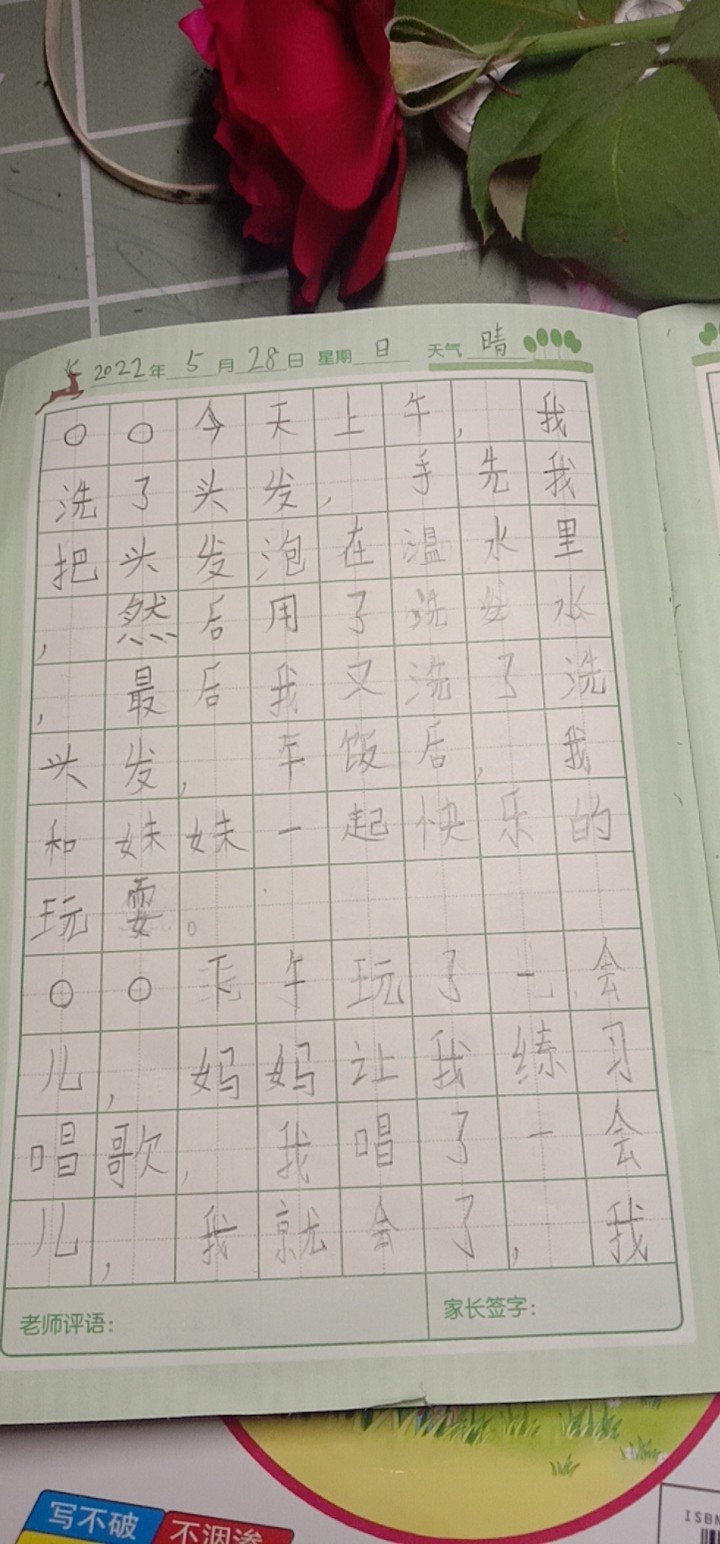 2022年 5月28日 星期日 天气 晴
○○今天上午，我
洗了头发，手先我
把头发泡在温水里
，然后用了洗发水
，最后我又洗了洗
头发，午饭后，我
和妹妹一起快乐的
玩耍。
○○下午玩了一会
儿，妈妈让我练习
唱歌，我唱了一会
儿，我就会了，我
老师评语：
家长签字：
写不破
不洇渗
ISBN